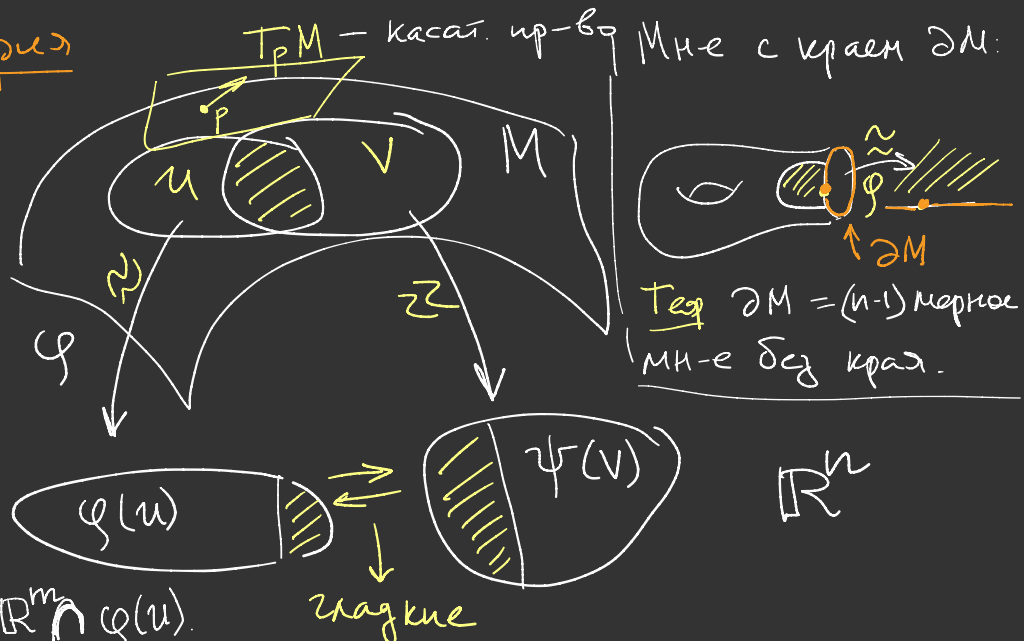 T_pM — касат. пр-во
p
U
V
M
≈
≈
φ
φ(U)
ψ(V)
гладкие
ℝᵐ ∩ φ(U).
Мн-е с краем ∂M:
≈
φ
∂M
Теор ∂M = (n-1) мерное
мн-е без края.
ℝⁿ